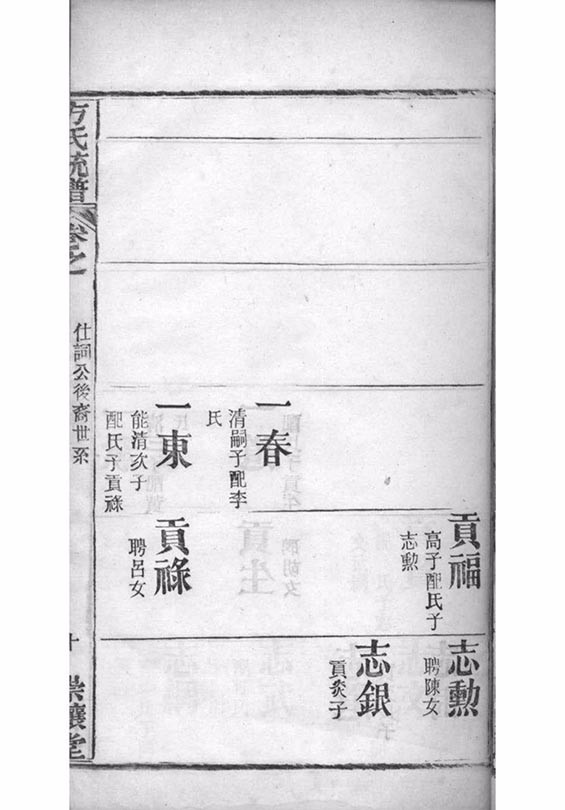 貢福
高子配氏子
志勲
志勲
聘陳女
志銀
貢炎子
一春
清嗣子配李
氏
一東
能清次子
配氏子貢祿
貢祿
聘呂女
方氏統譜
卷之
仕詞公後裔世系
十